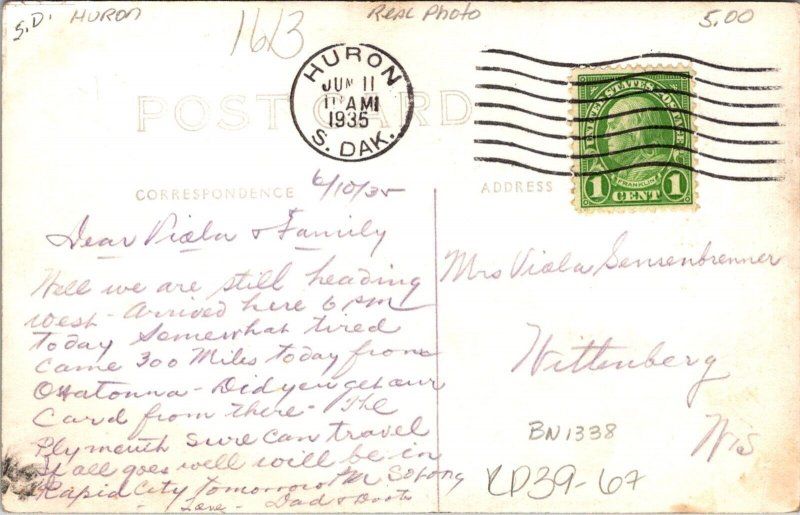 S.D. HURON
1613
REAL PHOTO
5.00
POST CARD
HURON
JUN 11
AM
1935
S. DAK.
UNITED STATES POSTAGE
FRANKLIN
1 CENT 1
CORRESPONDENCE
ADDRESS
6/10/35
Dear Viola & Family
Well we are still heading
west - Arrived here 6 PM
today Somewhat tired
came 300 Miles today from
Owatonna - Did you get our
Card from there - The
Plymouth Sure Can travel
If all goes well will be in
Rapid City tomorrow PM So long
- Love - Dad &
Mrs Viola Sensenbrenner
Wittenberg
Wis
BN1338
RD39-67